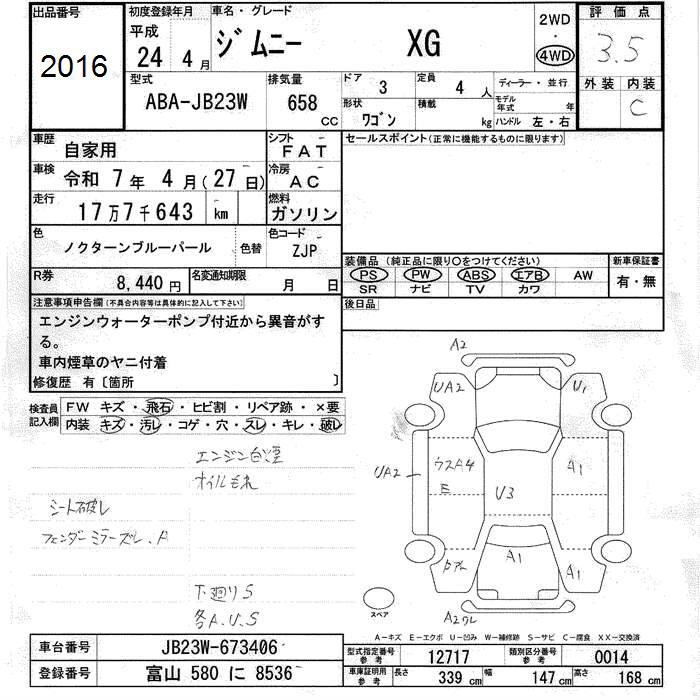 出品番号 初度登録年月 車名・グレード 2WD 評価点
2016 平成 24 4月 ジムニー XG ・ 4WD 3.5
型式 排気量 ドア 3 定員 4人 ディーラー・並行 外装 内装
ABA-JB23W 658 CC 形状 ワゴン 積載 kg モデル年式 年 ハンドル 左・右 C
車歴 自家用 シフト FAT セールスポイント(正常に機能するものに限ります)
車検 令和 7年 4月(27日) 冷房 AC
走行 17万7千643 km 燃料 ガソリン
色 ノクターンブルーパール 色替 色コード ZJP
装備品(純正品に限り○をつけてください) 新車保証書
PS PW ABS エアB AW 有・無
SR ナビ TV カワ
R券 8,440円 名変通知期限 月 日
後日品
注意事項申告欄(不具合内容等は具体的に記入して下さい)
エンジンウォーターポンプ付近から異音がす
る。
車内煙草のヤニ付着
修復歴 有〔箇所 〕
検査員記入欄 FW キズ・飛石・ヒビ割・リペア跡・×要
内装 キズ・汚レ・コゲ・穴・スレ・キレ・破レ
オイルもれ
シート破レ
フェンダーミラーズレ.A
下廻りS
各A.U.S
A2
UA2 U1
UA2 ウスA4 A1
E U3
A1 A1
スペア
A2ワレ
A-キズ E-エクボ U-凹み W-補修跡 S-サビ C-腐食 XX-交換済
車台番号 JB23W-673406
登録番号 富山 580 に 8536
型式指定番号 参考 12717 類別区分番号 参考 0014
車庫証明用 参考 長さ 339cm 幅 147cm 高さ 168cm